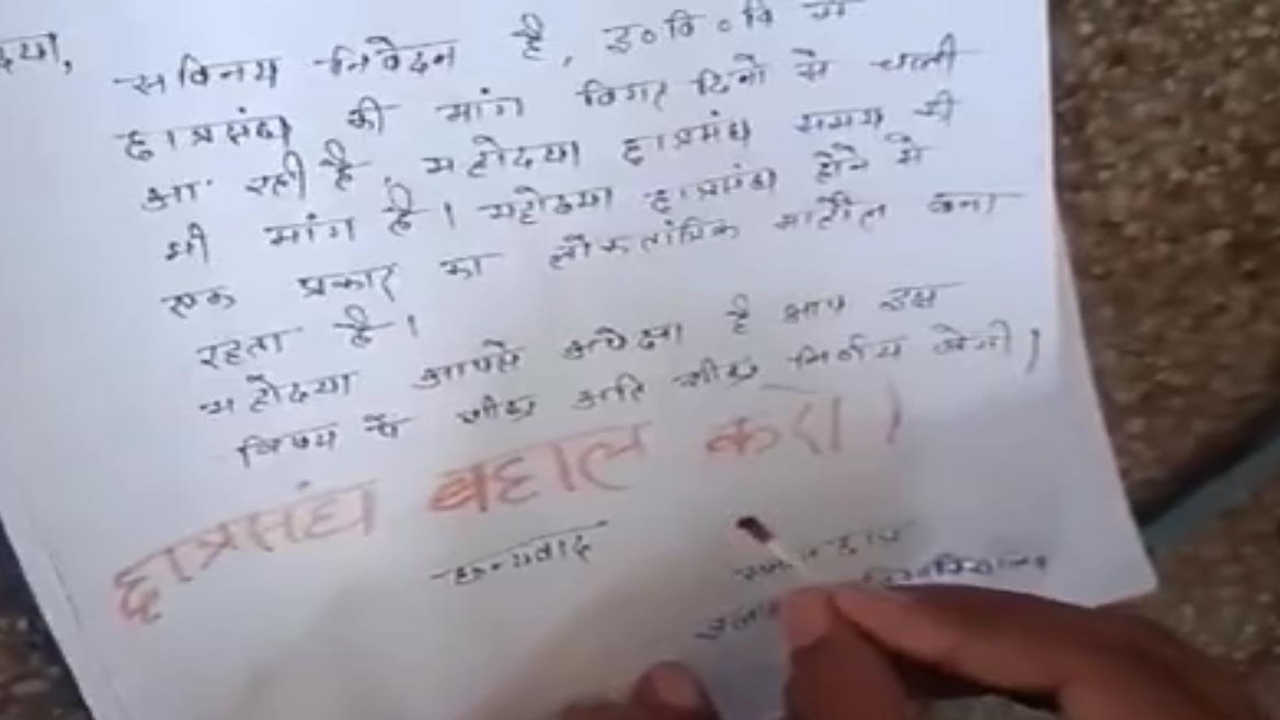 सविनय निवेदन है, इ०वि०वि में
छात्रसंघ की मांग विगत दिनों से चली
आ रही है, महोदया छात्रसंघ समय की
भी मांग है। महोदया छात्रसंघ होने से
एक प्रकार का लोकतांत्रिक माहौल बना
रहता है।
महोदया आपसे अपेक्षा है आप इस
विषय में शीघ्र अति शीघ्र निर्णय लेगी।
छात्रसंघ बहाल करो।
धन्यवाद